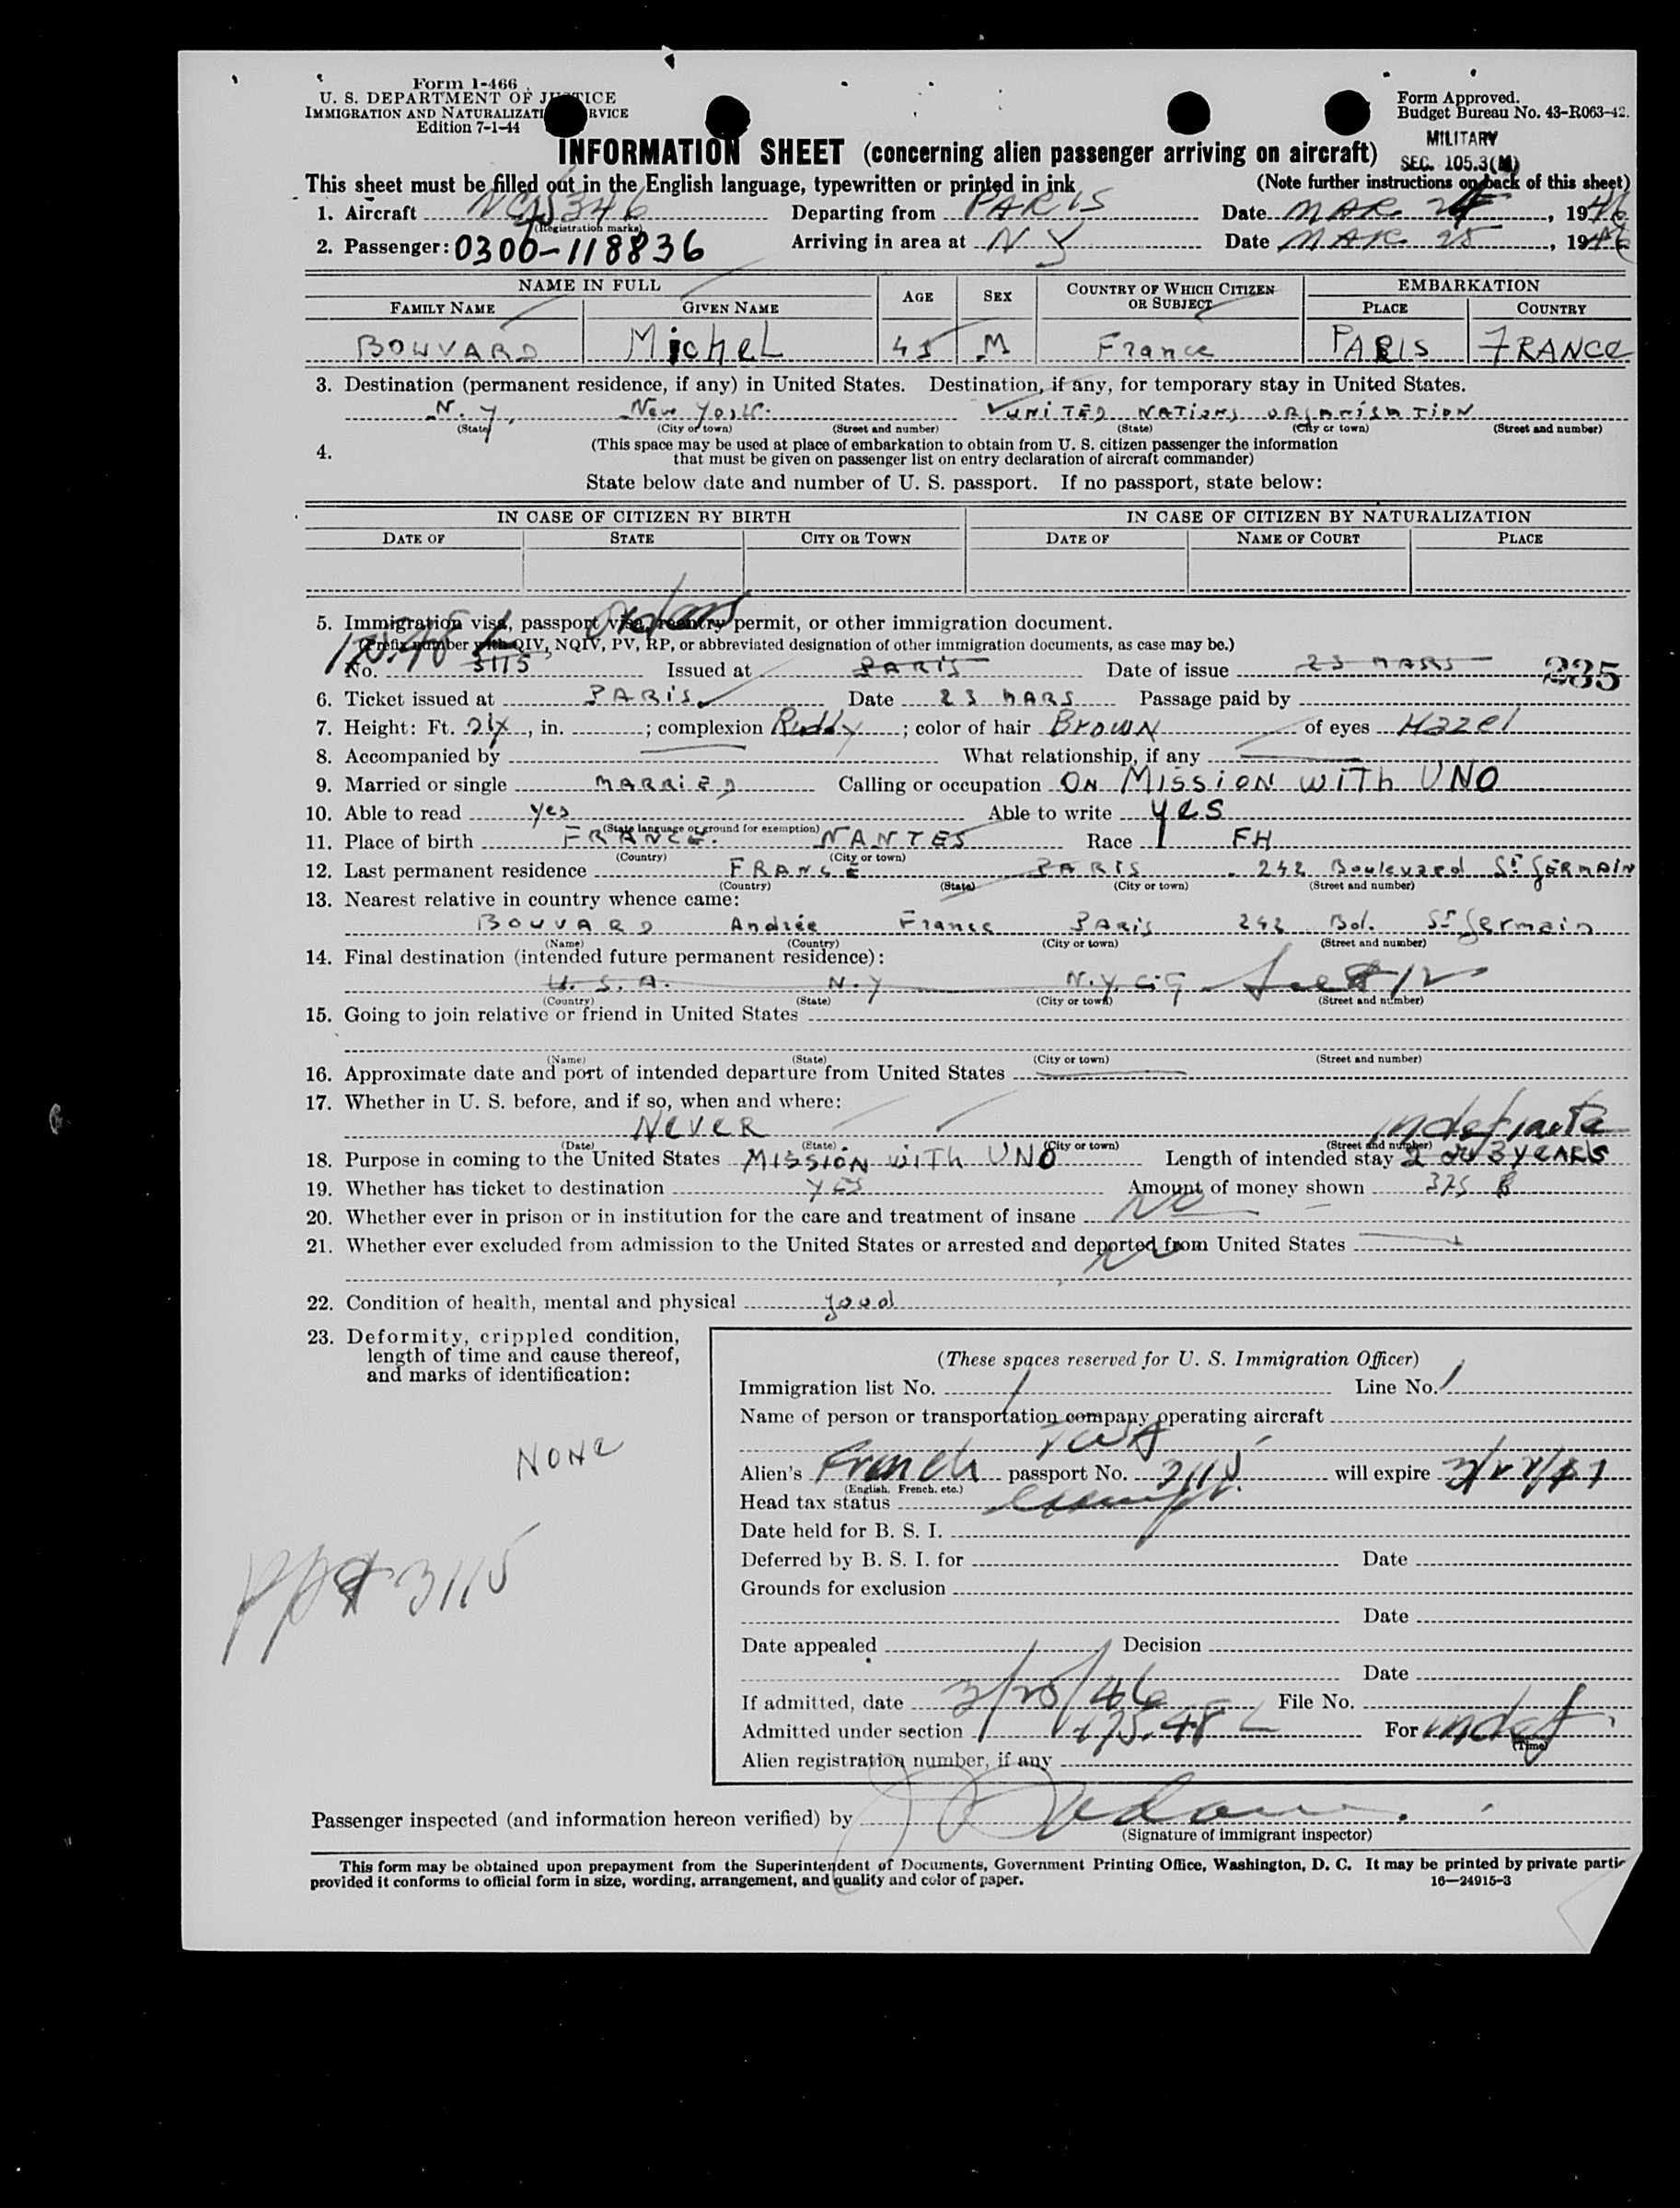 Form 1-466
U. S. DEPARTMENT OF JUSTICE
IMMIGRATION AND NATURALIZATION SERVICE
Edition 7-1-44
Form Approved.
Budget Bureau No. 43-R063-42.
MILITARY
SEC. 105.3(M)
INFORMATION SHEET (concerning alien passenger arriving on aircraft)
This sheet must be filled out in the English language, typewritten or printed in ink (Note further instructions on back of this sheet)
1. Aircraft Departing from PARIS Date MAR , 1946
(Registration marks)
2. Passenger: 0300-118836 Arriving in area at N Y Date MAR 25, 1946
NAME IN FULL AGE SEX COUNTRY OF WHICH CITIZEN OR SUBJECT EMBARKATION
FAMILY NAME GIVEN NAME PLACE COUNTRY
BOUVARD Michel 45 M France PARIS FRANCE
3. Destination (permanent residence, if any) in United States. Destination, if any, for temporary stay in United States.
N. Y. New York. UNITED NATIONS ORGANISATION
(State) (City or town) (Street and number) (State) (City or town) (Street and number)
4. (This space may be used at place of embarkation to obtain from U. S. citizen passenger the information
that must be given on passenger list on entry declaration of aircraft commander)
State below date and number of U. S. passport. If no passport, state below:
IN CASE OF CITIZEN BY BIRTH IN CASE OF CITIZEN BY NATURALIZATION
DATE OF STATE CITY OR TOWN DATE OF NAME OF COURT PLACE
5. Immigration visa, passport visa, reentry permit, or other immigration document.
(Prefix number with QIV, NQIV, PV, RP, or abbreviated designation of other immigration documents, as case may be.)
No. 3115 Issued at PARIS Date of issue 23 MARS 235
6. Ticket issued at PARIS Date 23 MARS Passage paid by
7. Height: Ft. six, in. ; complexion Ruddy ; color of hair BROWN of eyes Hazel
8. Accompanied by What relationship, if any
9. Married or single MARRIED Calling or occupation ON MISSION WITH UNO
10. Able to read yes Able to write yes
(State language or ground for exemption)
11. Place of birth FRANCE. NANTES Race FH
(Country) (City or town)
12. Last permanent residence FRANCE PARIS 242 Boulevard St GERMAIN
(Country) (State) (City or town) (Street and number)
13. Nearest relative in country whence came:
BOUVARD Andrée France PARIS 242 Bol. St Germain
(Name) (Country) (City or town) (Street and number)
14. Final destination (intended future permanent residence):
U. S. A. N. Y N. Y. City See # 12
(Country) (State) (City or town) (Street and number)
15. Going to join relative or friend in United States
(Name) (State) (City or town) (Street and number)
16. Approximate date and port of intended departure from United States
17. Whether in U. S. before, and if so, when and where:
NEVER indefinite
(Date) (State) (City or town) (Street and number)
18. Purpose in coming to the United States MISSION WITH UNO Length of intended stay 2 or 3 YEARS
19. Whether has ticket to destination yes Amount of money shown 375 $
20. Whether ever in prison or in institution for the care and treatment of insane NO
21. Whether ever excluded from admission to the United States or arrested and deported from United States
No
22. Condition of health, mental and physical good
23. Deformity, crippled condition,
length of time and cause thereof,
and marks of identification:
NONE
PP# 3115
(These spaces reserved for U. S. Immigration Officer)
Immigration list No. 1 Line No. 1
Name of person or transportation company operating aircraft
TWA
Alien's French passport No. 3115 will expire
(English. French. etc.)
Head tax status exempt
Date held for B. S. I.
Deferred by B. S. I. for Date
Grounds for exclusion
Date
Date appealed Decision
Date
If admitted, date 3/25/46 File No.
Admitted under section 175.48 For indef.
(Time)
Alien registration number, if any
Passenger inspected (and information hereon verified) by
(Signature of immigrant inspector)
This form may be obtained upon prepayment from the Superintendent of Documents, Government Printing Office, Washington, D. C. It may be printed by private
provided it conforms to official form in size, wording, arrangement, and quality and color of paper. 16—24915-3